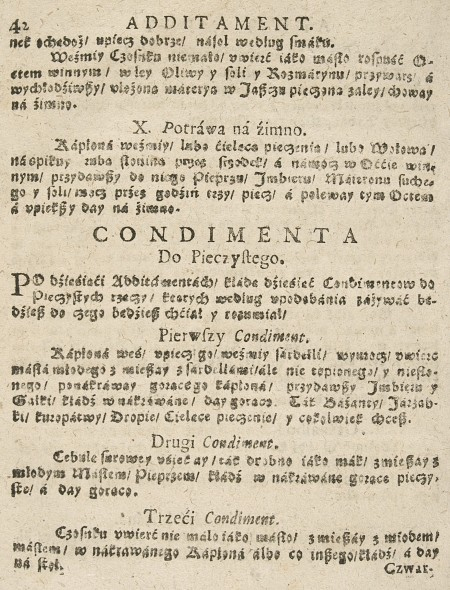 42 ADDITAMENT.
nek ochędoż/ upiecz dobrze/ nasol według smáku.
Weźmiy Czosnku niemáło/ uwierć iáko másło rospuść O-
ctem winnym/ wley Oliwy y soli y Rozmárynu/ przywarz/ á
wychłodźiwszy/ włożoną máteryą w Jászcż pieczoną zaley/ choway
ná źimno.
X. Potráwa ná źimno.
Kápłoná weźmiy/ lubo ćielęcą pieczenią/ lubo Wołową/
náspikuy grubą słoniną przez szrodek/ á námocz w Occie win-
nym/ przydawszy do niego Pieprzu/ Jmbieru/ Máieronu suche-
go y soli/ mocz przez godźin trzy/ piecz/ á poleway tym Octem
á upiekszy day ná źimno.
CONDIMENTA
Do Pieczystego.
PO dźieśiąći Additámentách/ kłádę dźieśięć Condimentow do
Pieczystych rzeczy/ ktorych według upodobánia záżywáć bę-
dźiesz do czego będźiesz chćiał y rozumiał/
Pierwszy Condiment.
Kápłoná weś/ upiecz go/ weźmiy sárdelli/ wymocz/ uwierć
másłá młodego zmieszay z sardellámi/ ále nie topionego/ y niesło-
nego/ ponákraway gorącego kápłoná/ przydawszy Jmbieru y
Gałki/ kłádź w nákrawáne/ day gorąco. Ták Báżánty/ Járząb-
ki/ kuropátwy/ Dropie/ Cielęce pieczenie/ y cokolwiek chcesz.
Drugi Condiment.
Cebule surowey usiekay/ ták drobno iáko mák/ zmieszay z
młodym Másłem/ Pieprzem/ kłádź w nákrawáne gorące pieczy-
ste/ á day gorąco.
Trzeći Condiment.
Czosnku uwierć nie máło iáko másło/ zmieszay z miodem/
másłem/ w nákrawánego Kápłoná álbo co inszego/ kłádź/ á day
ná stoł.
Czwar-